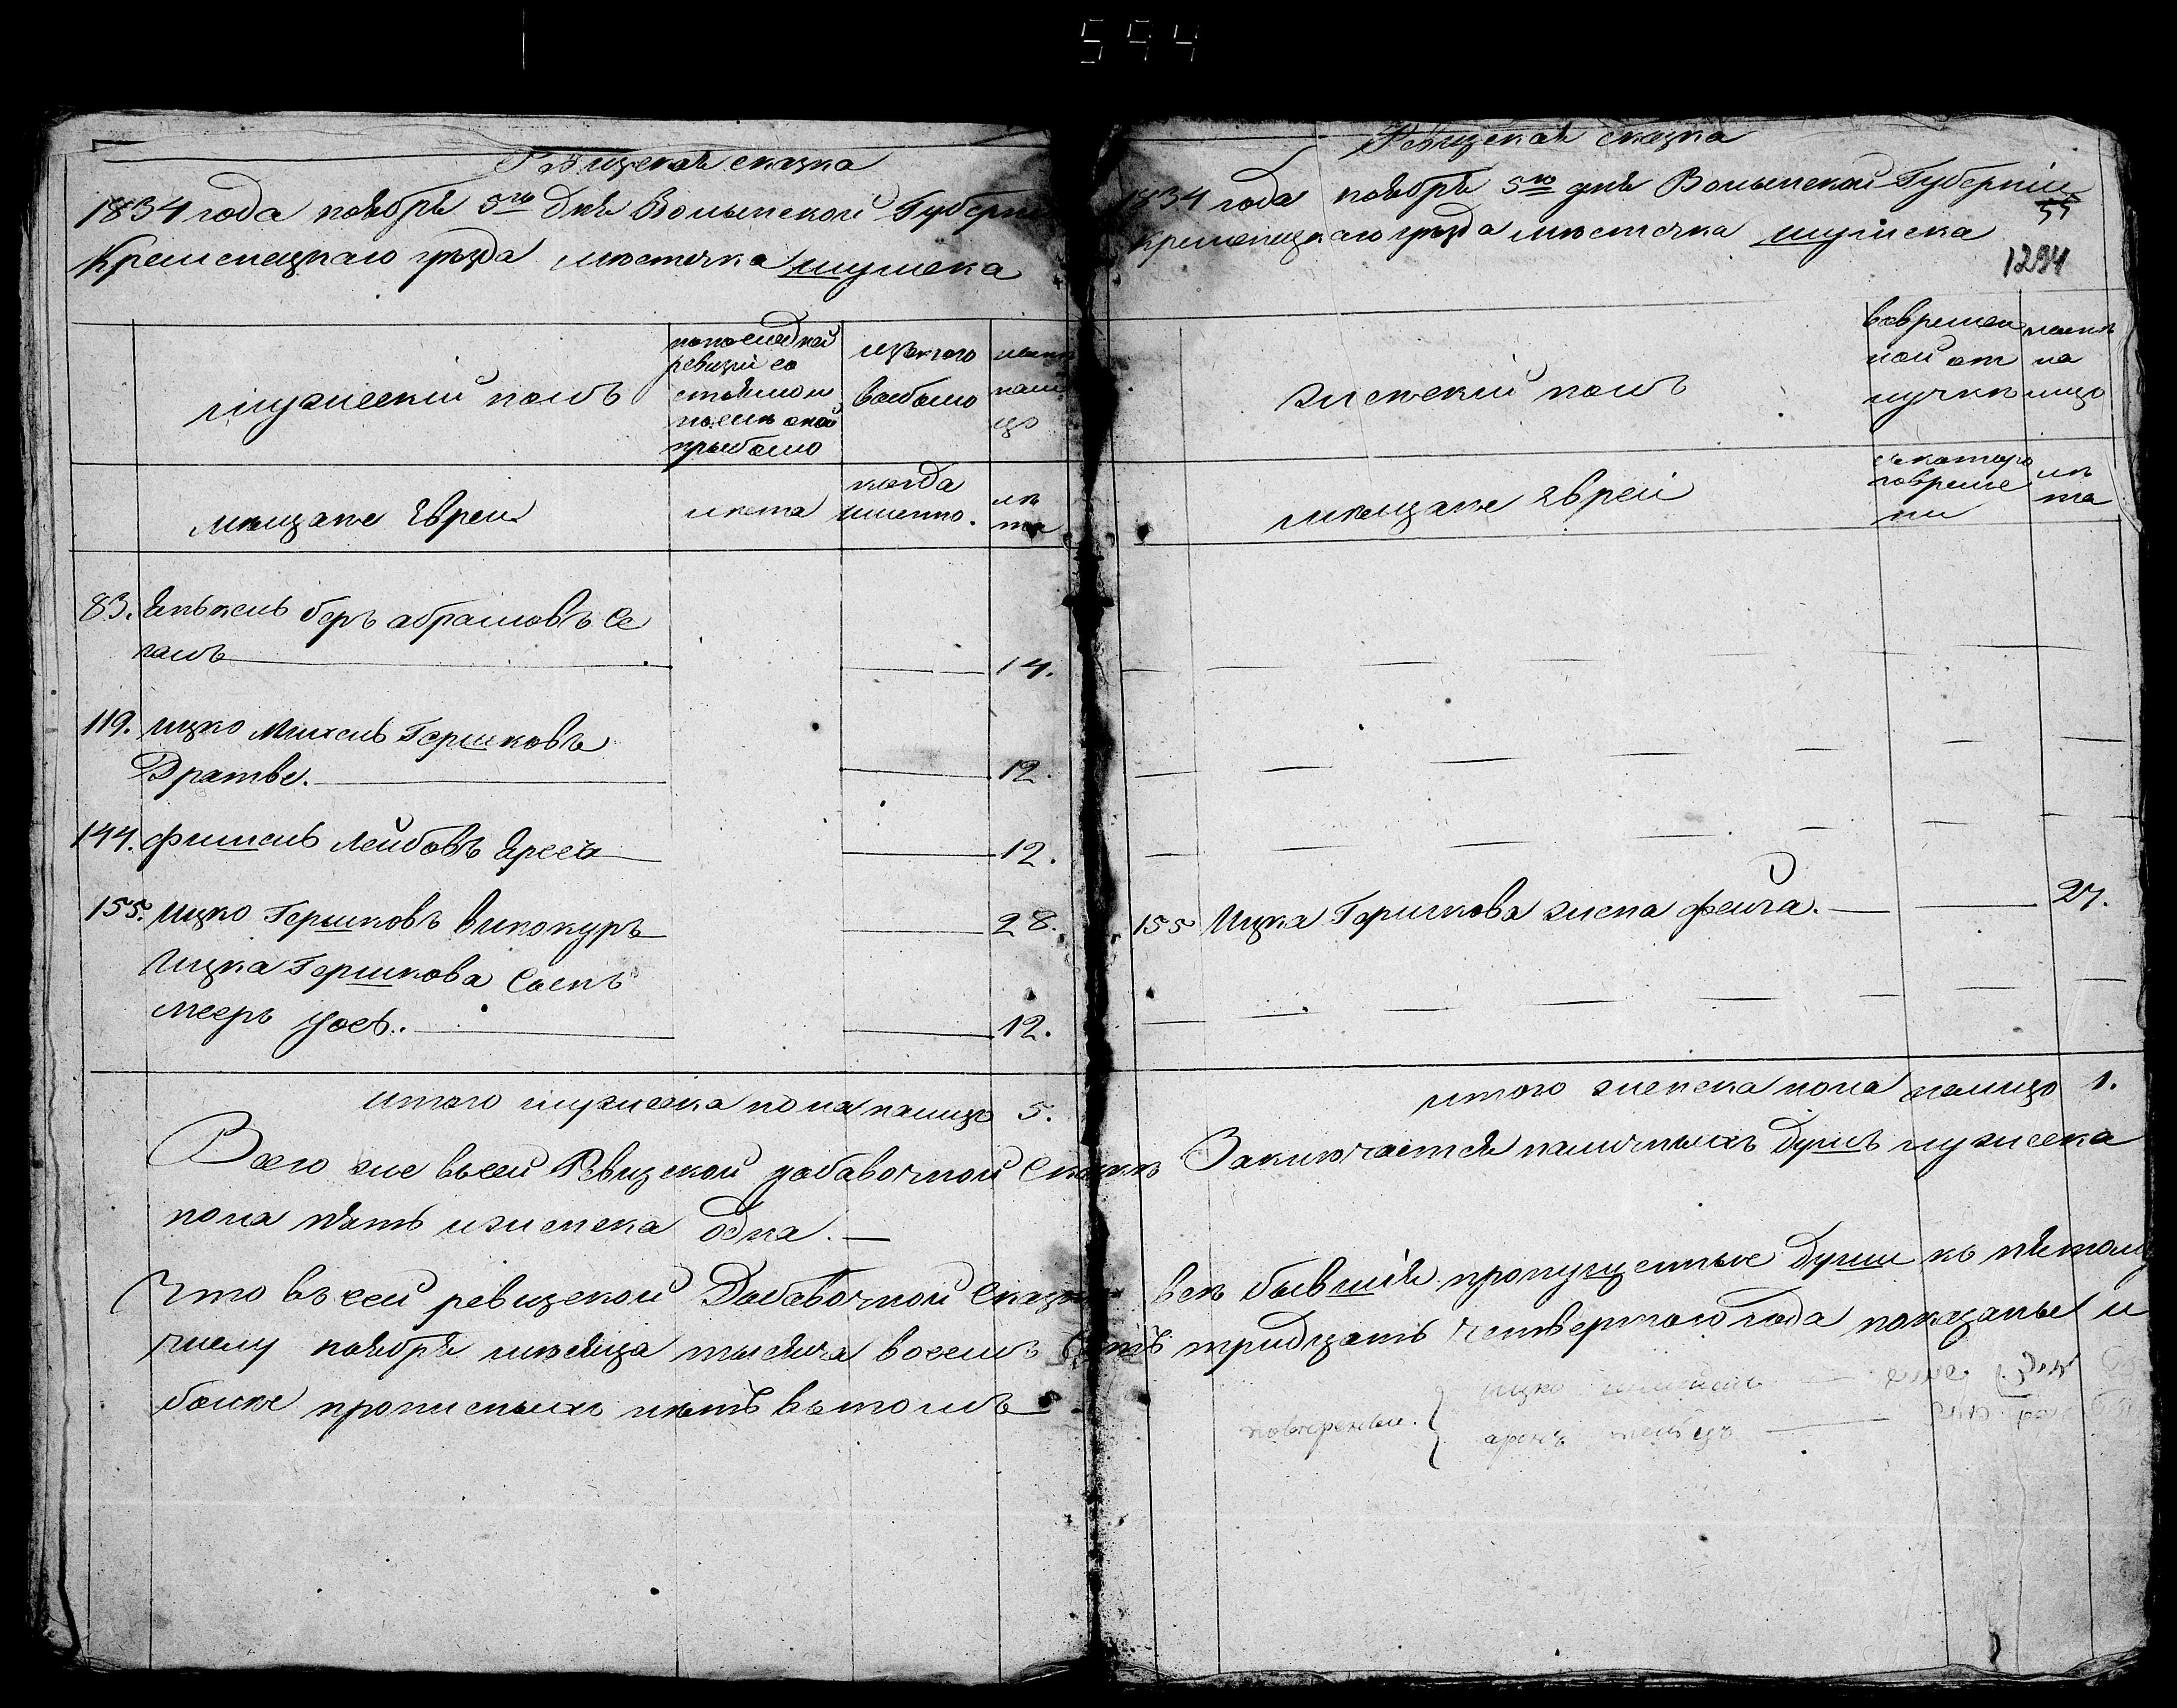 594
Ревизская сказка
1834 года ноября 5го дня Волынской Губерни
Кременецкаго уезда местечка шумска
мужеский полъ
попоследней
ревизии со
стояло и
после оной
прыбыло
изътого
выбыло
ныне
нали
цо
мещане Евреи
лета
когда
именно.
ле
та
83. Янькель беръ абрамовъ Се
галъ 14.
119. ицко Михель Гершковъ
Дратве. 12.
144. фишель Лейбовъ 12.
155. ицко Гершковъ винокуръ 28.
Ицка Гершкова Сынъ
мееръ 12.
итого мужеска пола налицо 5.
Ревизская сказка
1834 года ноября 5го дня Волынской Губернии
55
Кременецкаго уезда местечка шумска
1294
женский полъ
вовремен
ной от
лучке
ныне
на
лицо
мещане Евреи
скаторо
говреме
ни
ле
та
155 Ицка Гершкова жена фейга. 27.
итого женска пола налицо 1.
Всего же въсей Ревизской добавочной Сказке Заключается наличныхъ душъ мужеска
пола пять и женска одна.
Что въ сей ревизской Добавочной Сказке все бывшия пропущенные души къ пятому
числу ноября месяца тысяча восемъ Сотъ тридцать четвертого года показаны и
более прописныхъ нетъ вътомъ
поверенныи. { ицко